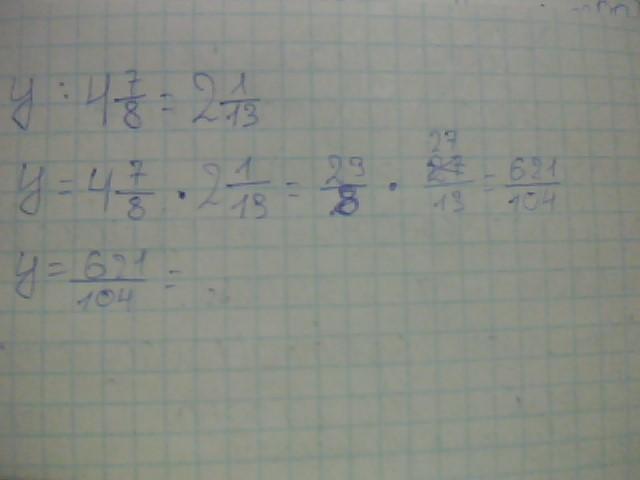 y : 4 7/8 = 2 1/13
y = 4 7/8 · 2 1/13 = 23/8 · 27/13 = 621/104
y = 621/104 =